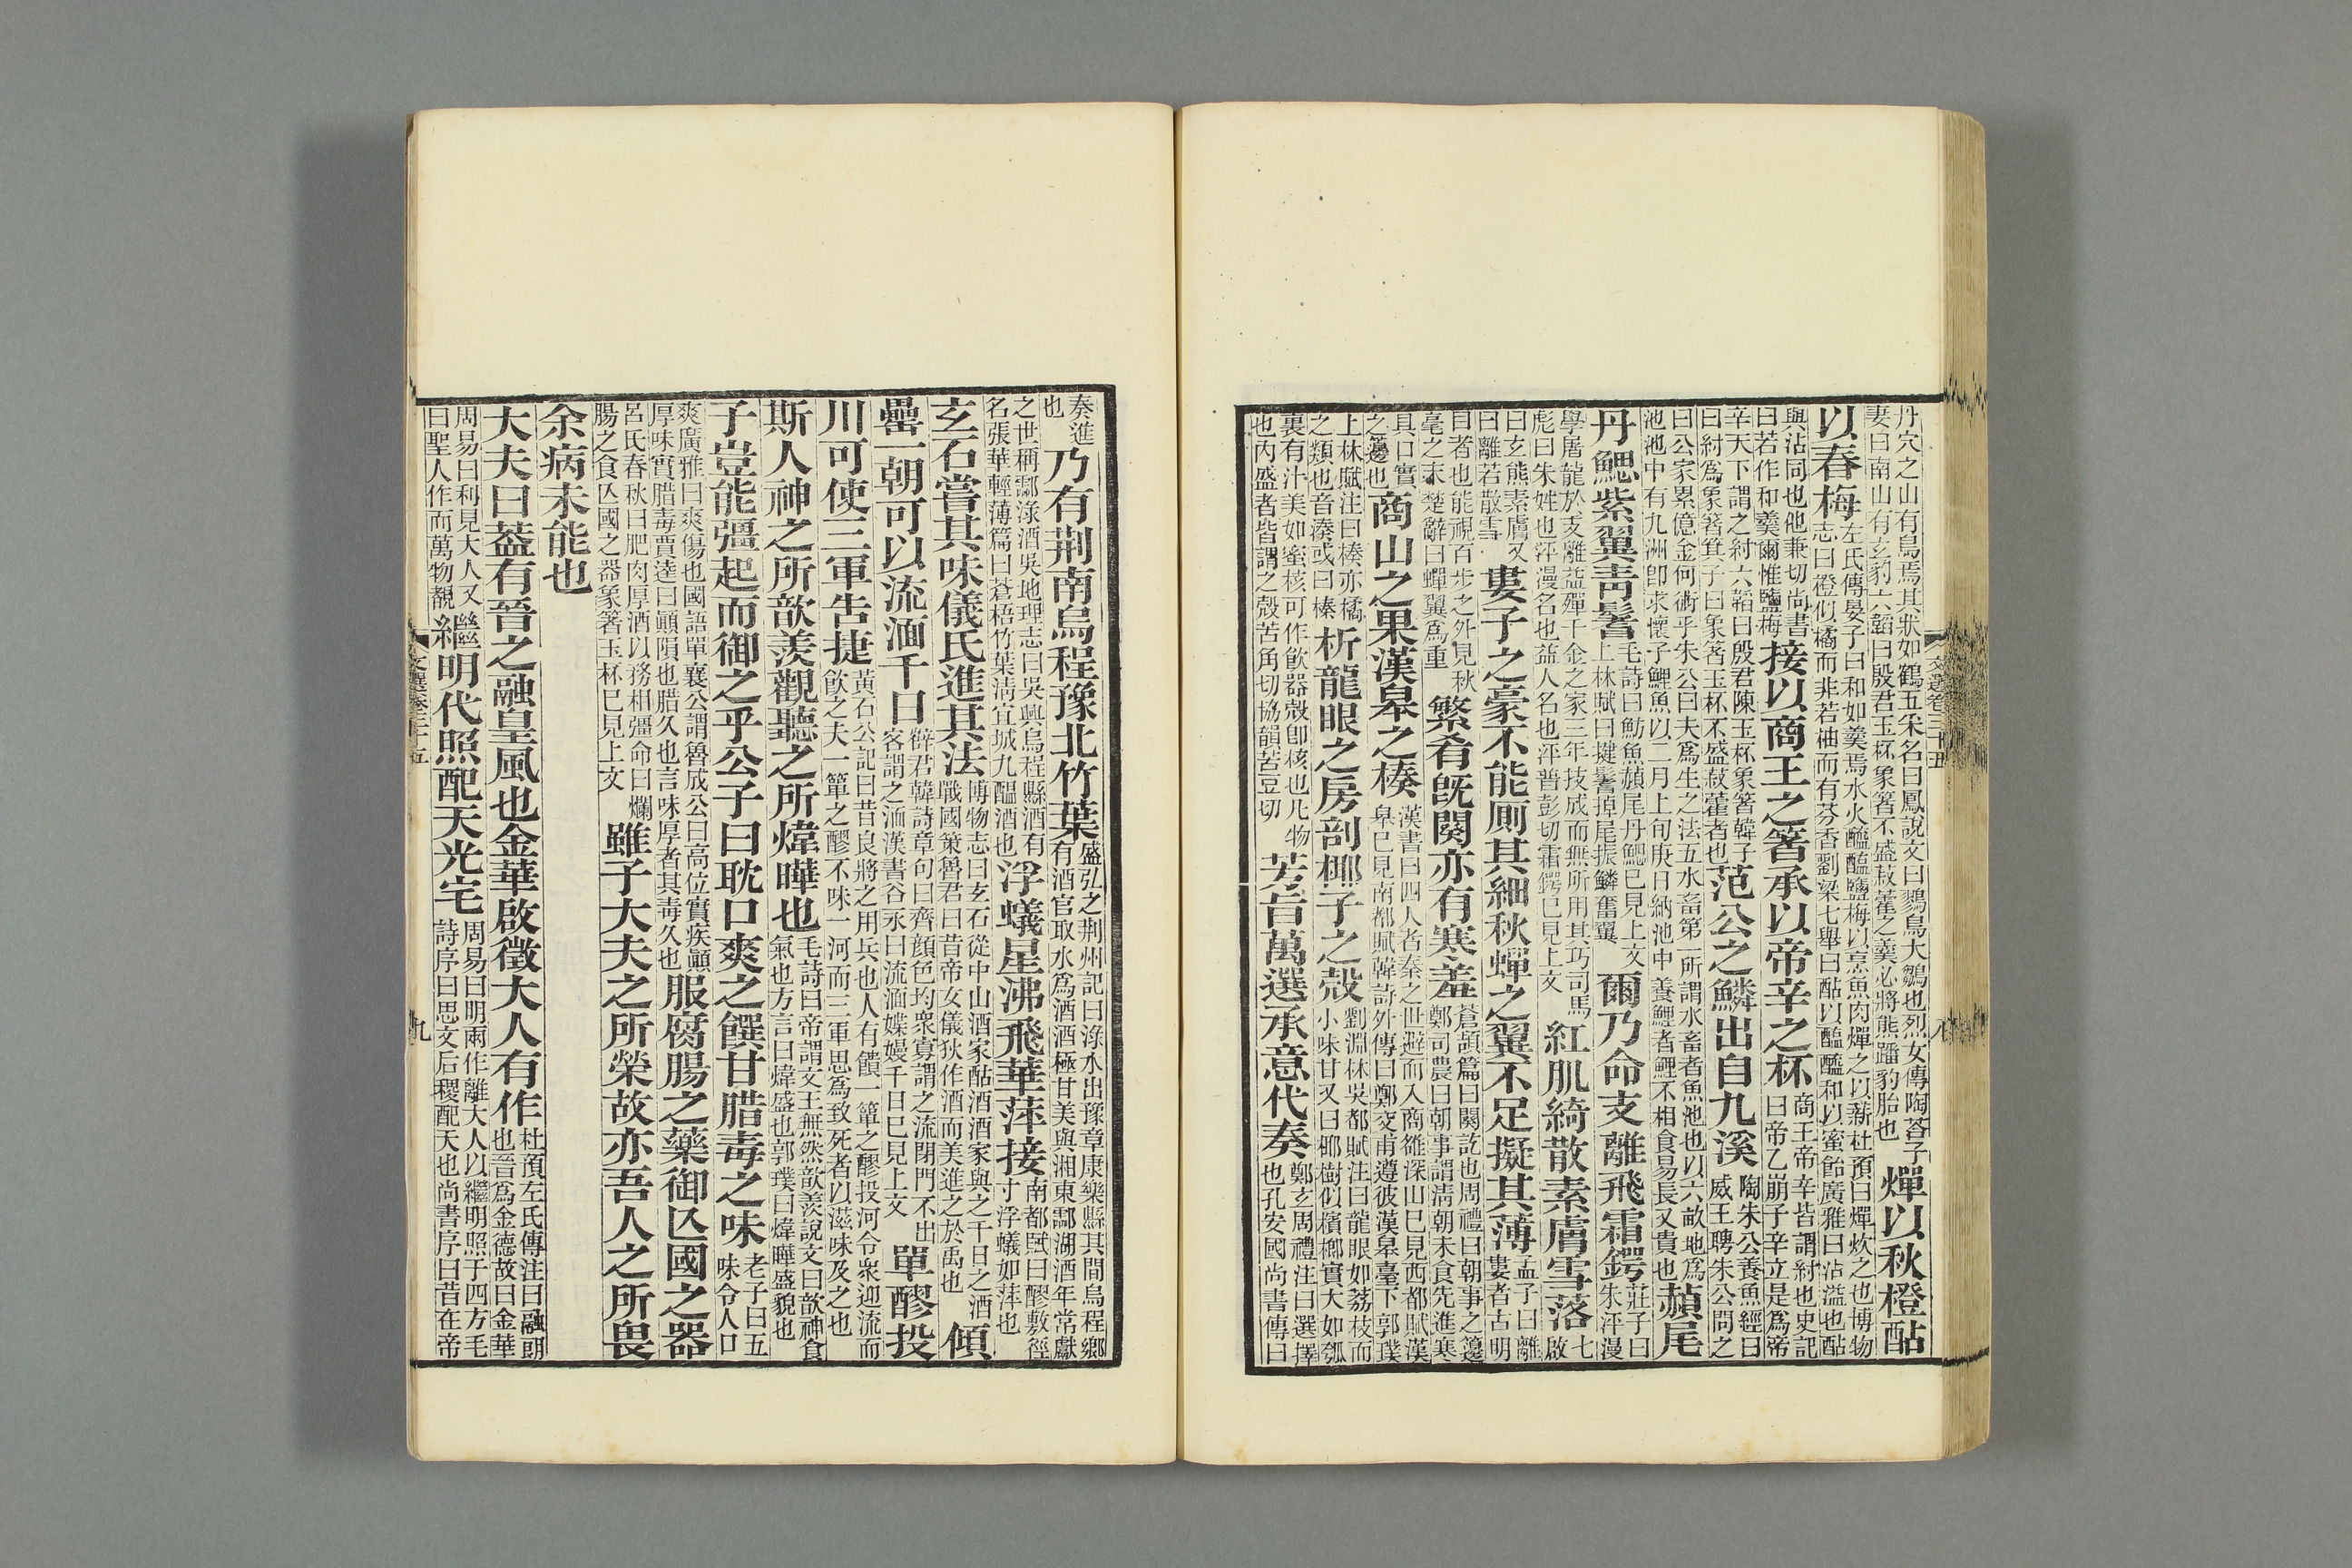 丹穴之山有鳥焉其狀如鶴五采名曰鳳說文曰鷚鳥大鶵也烈女傳陶荅子
妻曰南山有玄豹六韜曰殷君玉杯象箸不盛菽藿之羹必將熊蹯豹胎也
燀以秋橙酟
以春梅
左氏傳晏子曰和如羹焉水火醯醢鹽梅以烹魚肉燀之以薪杜預曰燀炊之也博物
志曰橙似橘而非若柚而有芬香劉梁七舉曰酟以醯醢和以蜜飴廣雅曰沾溢也酟
與沾同也他兼切尚書
曰若作和羹爾惟鹽梅
接以商王之箸承以帝辛之杯
商王帝辛皆謂紂也史記
曰帝乙崩子辛立是爲帝
辛天下謂之紂六韜曰殷君陳玉杯象箸韓子
曰紂爲象箸箕子曰象箸玉杯不盛菽藿者也
范公之鱗出自九溪
陶朱公養魚經曰
威王聘朱公問之
曰公家累億金何術乎朱公曰夫爲生之法五水畜第一所謂水畜者魚池也以六畝地爲
池池中有九洲卽求懷子鯉魚以二月上旬庚日納池中養鯉者鯉不相食易長又貴也
赬尾
丹鰓紫翼靑鬐
毛詩曰魴魚赬尾丹鰓已見上文
上林賦曰揵鬐掉尾振鱗奮翼
爾乃命支離飛霜鍔
莊子曰
朱泙漫
學屠龍於支離益殫千金之家三年技成而無所用其巧司馬
彪曰朱姓也泙漫名也益人名也泙普彭切霜鍔已見上文
紅肌綺散素膚雪落
七
啟
曰玄熊素膚又
曰離若散雪
婁子之豪不能厠其細秋蟬之翼不足擬其薄
孟子曰離
婁者古明
目者也能視百步之外見秋
毫之末楚辭曰蟬翼爲重
繁肴旣闋亦有寒羞
蒼頡篇曰闋訖也周禮曰朝事之籩
鄭司農曰朝事謂淸朝未食先進寒
具口實
之籩也
商山之果漢皋之楱
漢書曰四人者秦之世避而入商雒深山已見西都賦漢
皋已見南都賦韓詩外傳曰鄭交甫遵彼漢皋臺下郭璞
上林賦注曰楱亦橘
之類也音湊或曰榛
析龍眼之房剖椰子之殼
劉淵林吳都賦注曰龍眼如荔枝而
小味甘又曰椰樹似檳榔實大如瓠
裏有汁美如蜜核可作飲器殼卽核也凡物
也內盛者皆謂之殼苦角切協韻苦豆切
芳旨萬選承意代奏
鄭玄周禮注曰選擇
也孔安國尚書傳曰
文選卷三十五
八
奏進
也
乃有荆南烏程豫北竹葉
盛弘之荆州記曰淥水出豫章康樂縣其間烏程鄉
有酒官取水爲酒酒極甘美與湘東酃湖酒年常獻
之世稱酃淥酒吳地理志曰吳興烏程縣酒有
名張華輕薄篇曰蒼梧竹葉淸宜城九醖酒也
浮蟻星沸飛華蓱接
南都賦曰醪敷徑
寸浮蟻如蓱也
玄石嘗其味儀氏進其法
博物志曰玄石從中山酒家酤酒酒家與之千日之酒
戰國策魯君曰昔帝女儀狄作酒而美進之於禹也
傾
罍一朝可以流湎千日
薛君韓詩章句曰齊顔色均衆寡謂之流閉門不出
客謂之湎漢書谷永曰流湎媟嫚千日已見上文
單醪投
川可使三軍告捷
黃石公記曰昔良將之用兵也人有饋一簞之醪投河令衆迎流而
飲之夫一簞之醪不味一河而三軍思爲致死者以滋味及之也
斯人神之所歆羨觀聽之所煒曄也
毛詩曰帝謂文王無然歆羨說文曰歆神食
氣也方言曰煒盛也郭璞曰煒曄盛貌也
子豈能彊起而御之乎公子曰耽口爽之饌甘腊毒之味
老子曰五
味令人口
爽廣雅曰爽傷也國語單襄公謂魯成公曰高位實疾顚
厚味實腊毒賈逵曰顚隕也腊久也言味厚者其毒久也
服腐腸之藥御亾國之器
呂氏春秋曰肥肉厚酒以務相彊命曰爛
腸之食亾國之器象箸玉杯已見上文
雖子大夫之所榮故亦吾人之所畏
余病未能也
大夫曰葢有晉之融皇風也金華啟徵大人有作
杜預左氏傳注曰融朗
也晉爲金德故曰金華
周易曰利見大人又
曰聖人作而萬物覩
繼明代照配天光宅
周易曰明兩作離大人以繼明照于四方毛
詩序曰思文后稷配天也尚書序曰昔在帝
文選卷三十五
九